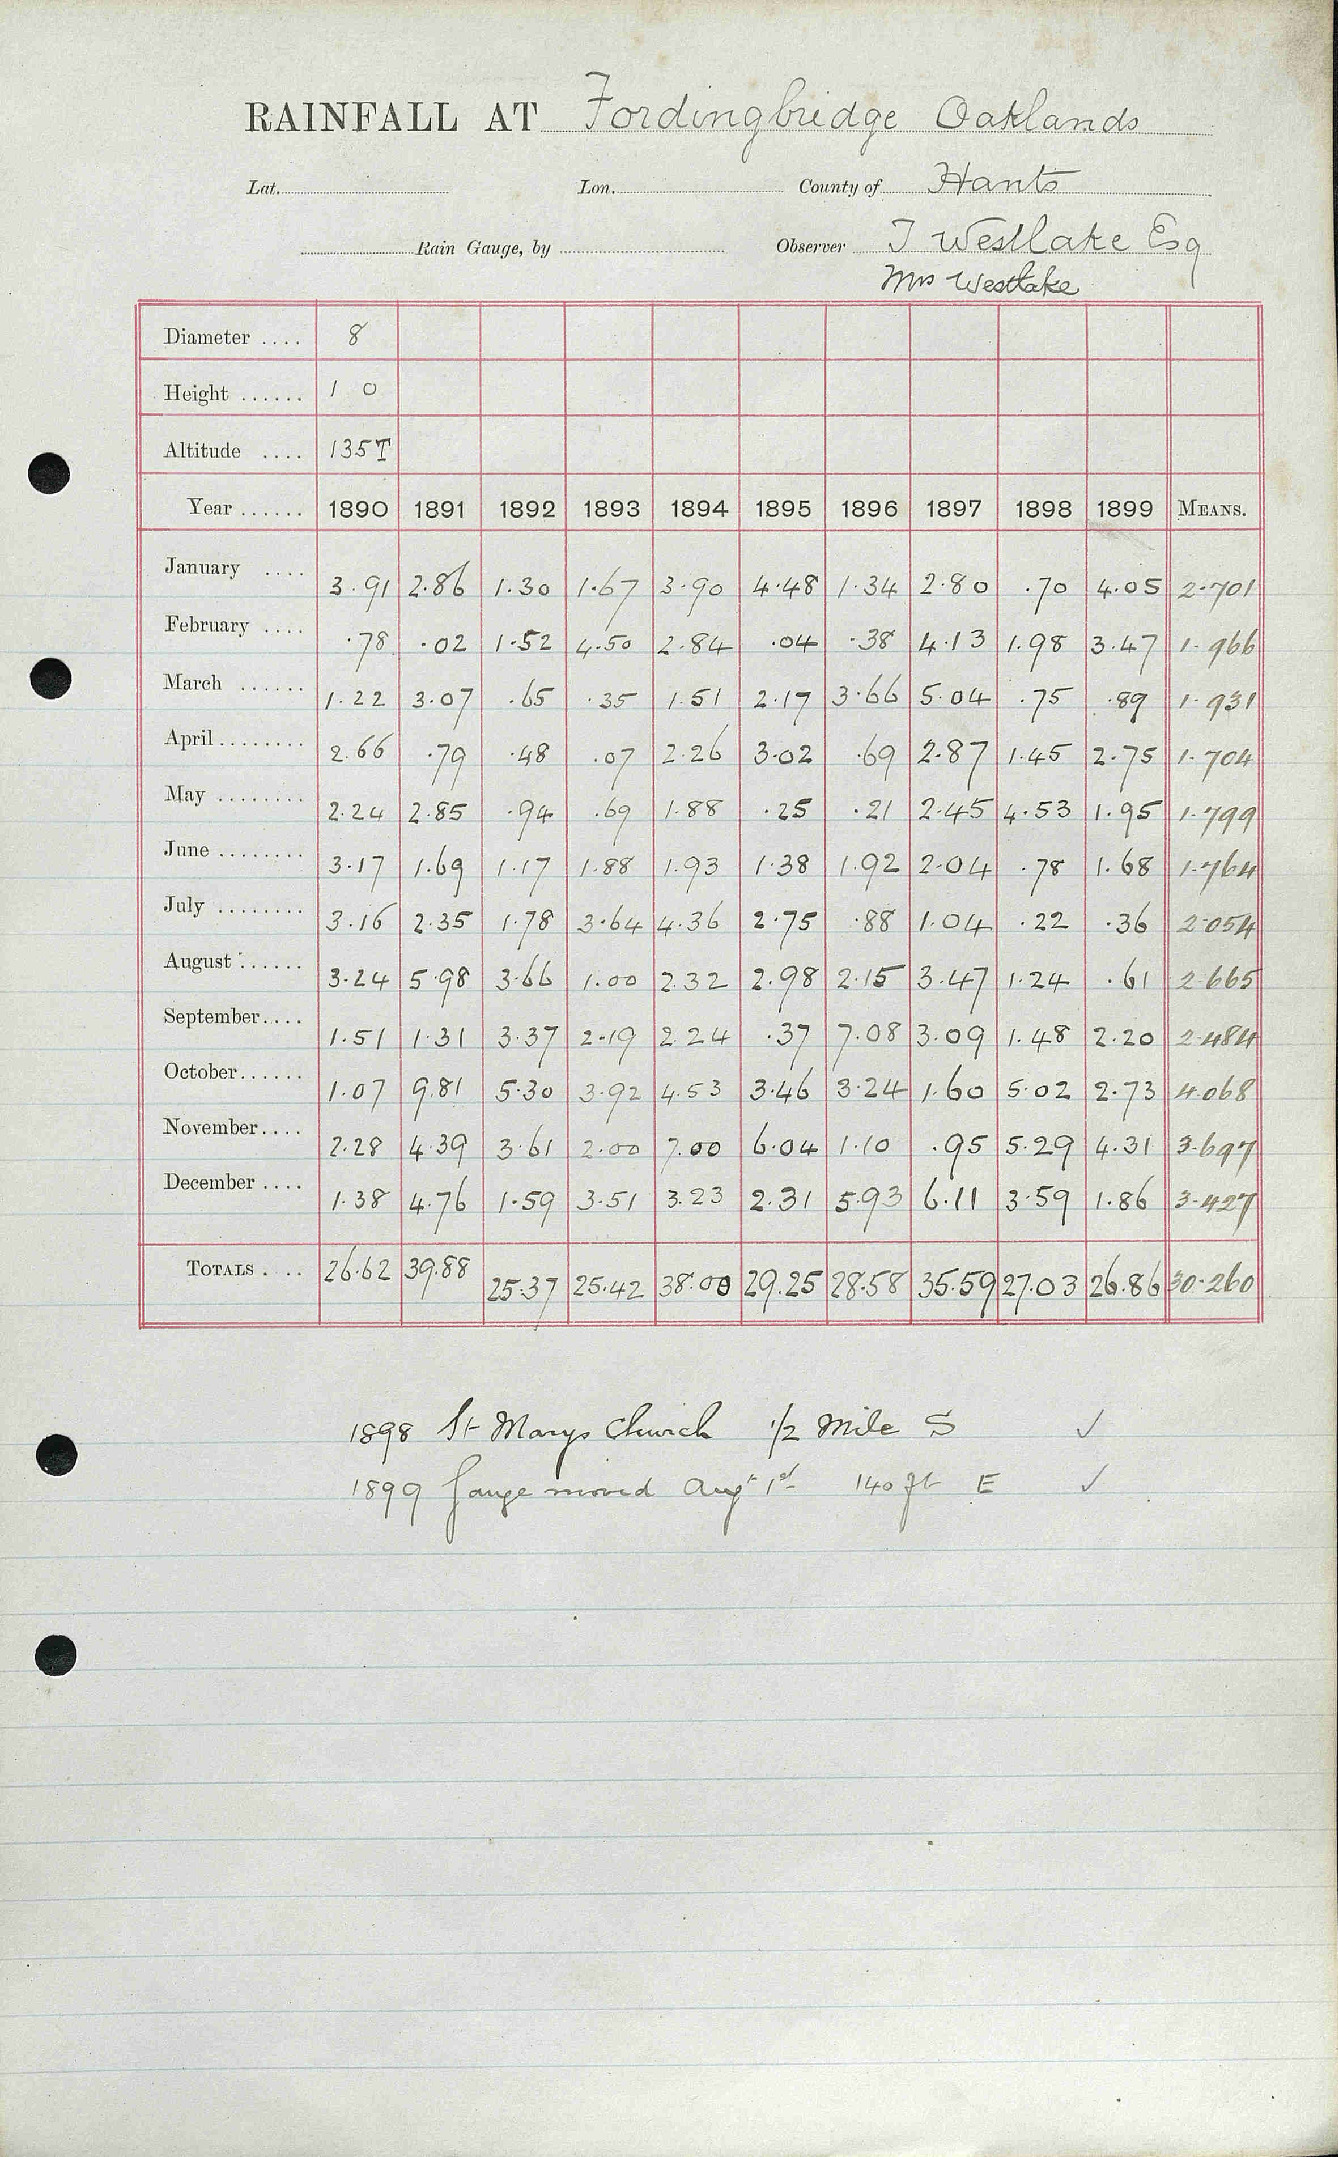 RAINFALL AT Fordingbridge Oaklands
Lat. Lon. County of Hants
Rain Gauge, by Observer T Westlake Esq
Mrs Westlake
Diameter .... 8
Height ...... 1 0
Altitude .... 135T
Year ...... 1890 1891 1892 1893 1894 1895 1896 1897 1898 1899 MEANS.
January .... 3.91 2.86 1.30 1.67 3.90 4.48 1.34 2.80 .70 4.05 2.701
February .... .78 .02 1.52 4.50 2.84 .04 .38 4.13 1.98 3.47 1.966
March ...... 1.22 3.07 .65 .35 1.51 2.17 3.66 5.04 .75 .89 1.931
April ........ 2.66 .79 .48 .07 2.26 3.02 .69 2.87 1.45 2.75 1.704
May ........ 2.24 2.85 .94 .69 1.88 .25 .21 2.45 4.53 1.95 1.799
June ........ 3.17 1.69 1.17 1.88 1.93 1.38 1.92 2.04 .78 1.68 1.764
July ........ 3.16 2.35 1.78 3.64 4.36 2.75 .88 1.04 .22 .36 2.054
August ...... 3.24 5.98 3.66 1.00 2.32 2.98 2.15 3.47 1.24 .61 2.665
September.... 1.51 1.31 3.37 2.19 2.24 .37 7.08 3.09 1.48 2.20 2.484
October...... 1.07 9.81 5.30 3.92 4.53 3.46 3.24 1.60 5.02 2.73 4.068
November.... 2.28 4.39 3.61 2.00 7.00 6.04 1.10 .95 5.29 4.31 3.697
December .... 1.38 4.76 1.59 3.51 3.23 2.31 5.93 6.11 3.59 1.86 3.427
TOTALS .... 26.62 39.88 25.37 25.42 38.00 29.25 28.58 35.59 27.03 26.86 30.260
1898 St Marys Church 1/2 Mile S ✓
1899 Gauge moved Augt 1st 140 ft E ✓